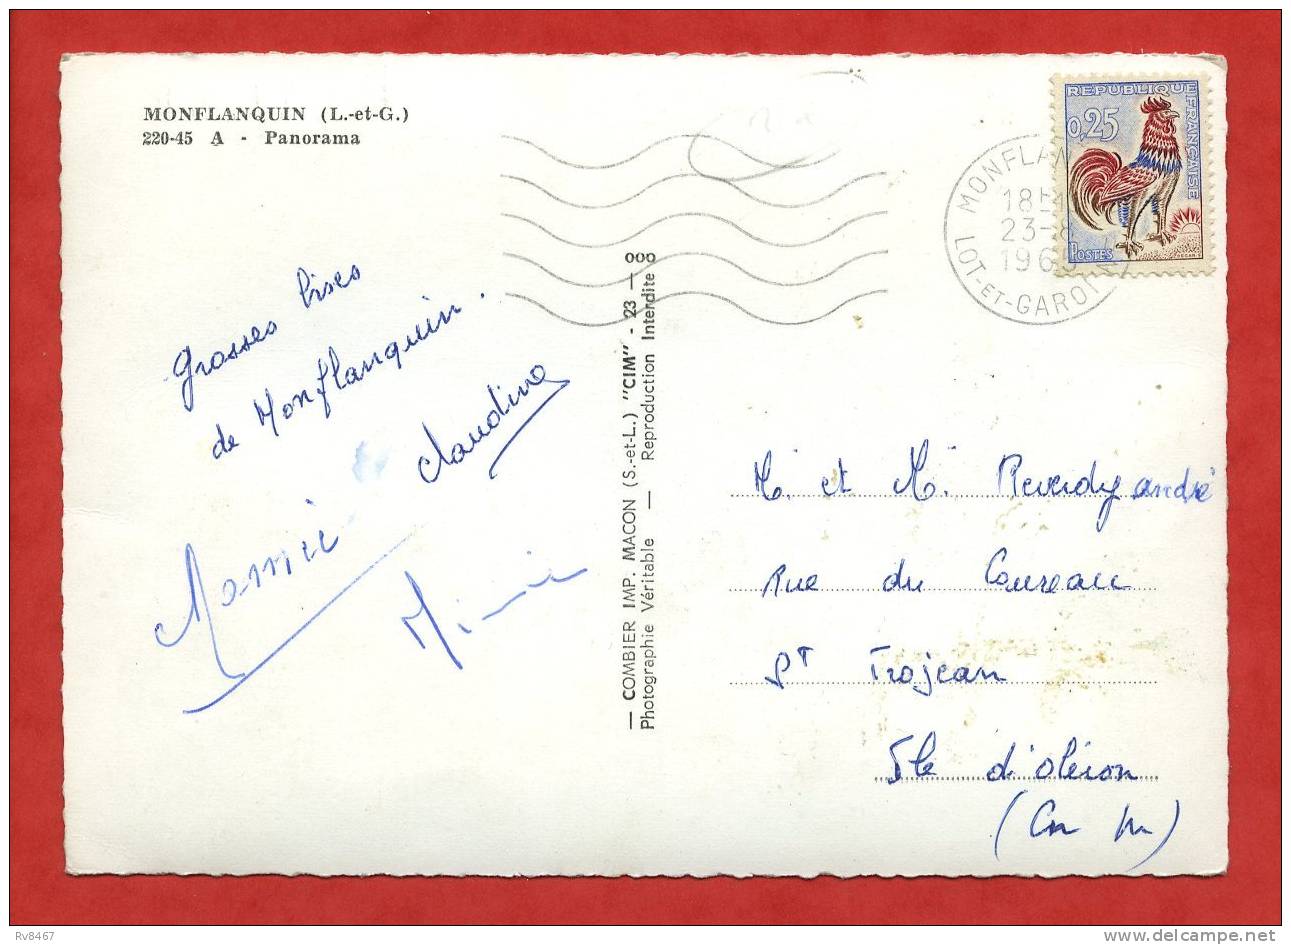 MONFLANQUIN (L.-et-G.)
220-45 A - Panorama
REPUBLIQUE FRANÇAISE
0,25
POSTES
MONFLAN
18H
23-8
196
LOT-ET-GARO
Grosses bises
de Monflanquin.
Claudine
Mamie
Mimie
— COMBIER IMP. MACON (S.-et-L.) "CIM" - 23 — ooo
Photographie Véritable — Reproduction Interdite
M. et M. Reverdy andré
Rue du Coureau
St Trojean
Ile d'oléron
(Ch M)
Rv8467
delcampe.net